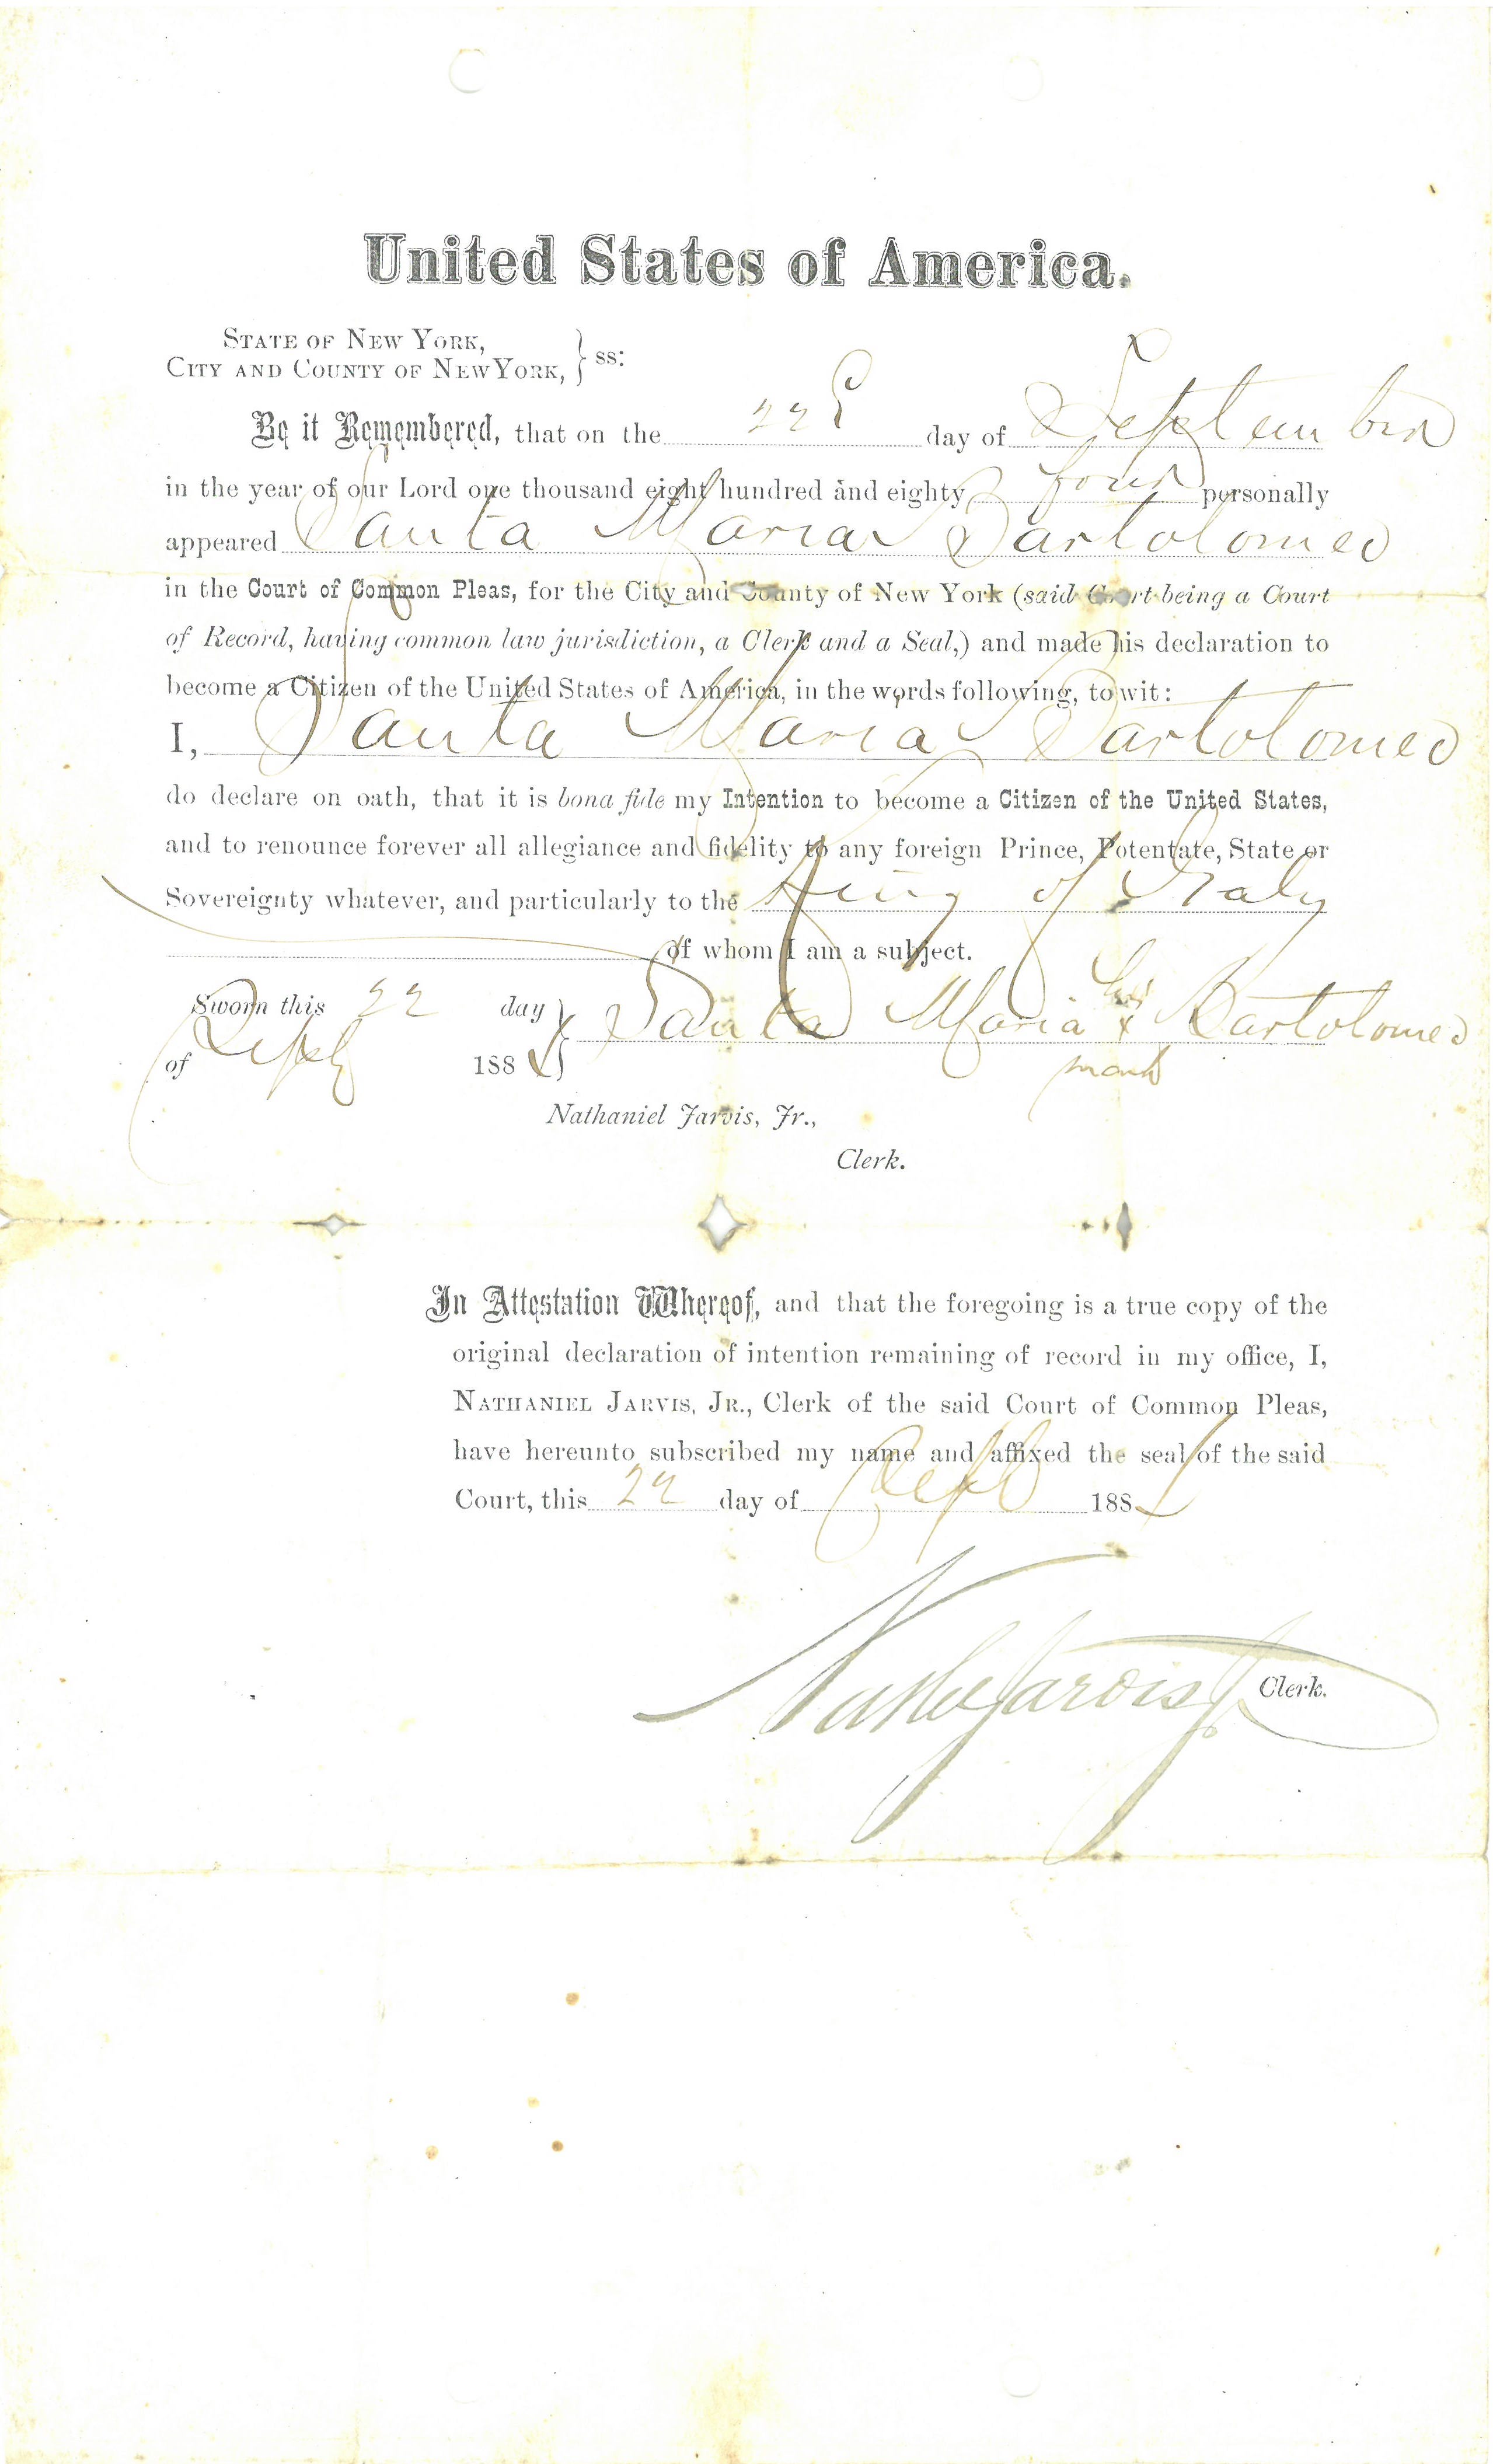 United States of America.
STATE OF NEW YORK,
CITY AND COUNTY OF NEW YORK, } ss:
Be it Remembered, that on the 22d day of September
in the year of our Lord one thousand eight hundred and eighty four personally
appeared Santa Maria Bartolomeo
in the Court of Common Pleas, for the City and County of New York (said Court being a Court
of Record, having common law jurisdiction, a Clerk and a Seal,) and made his declaration to
become a Citizen of the United States of America, in the words following, to wit:
I, Santa Maria Bartolomeo
do declare on oath, that it is bona fide my Intention to become a Citizen of the United States,
and to renounce forever all allegiance and fidelity to any foreign Prince, Potentate, State or
Sovereignty whatever, and particularly to the King of Italy
of whom I am a subject.
Sworn this 22 day } Santa Maria his x Bartolomeo
of Sept 1884 mark
Nathaniel Jarvis, Jr.,
Clerk.
In Attestation Whereof, and that the foregoing is a true copy of the
original declaration of intention remaining of record in my office, I,
NATHANIEL JARVIS, JR., Clerk of the said Court of Common Pleas,
have hereunto subscribed my name and affixed the seal of the said
Court, this 22 day of Sept 1884
Nathl Jarvis Jr Clerk.